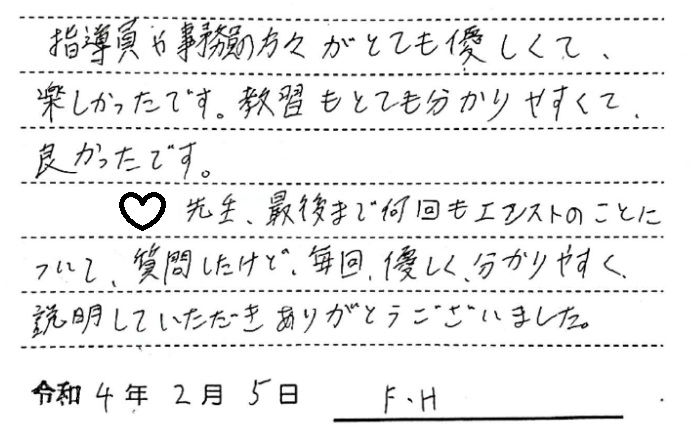 指導員や事務員の方々がとても優しくて、
楽しかったです。教習もとても分かりやすくて、
良かったです。
♡ 先生、最後まで何回もエンストのことに
ついて、質問したけど、毎回、優しく、分かりやすく、
説明していただきありがとうございました。
令和4年2月5日 F.H